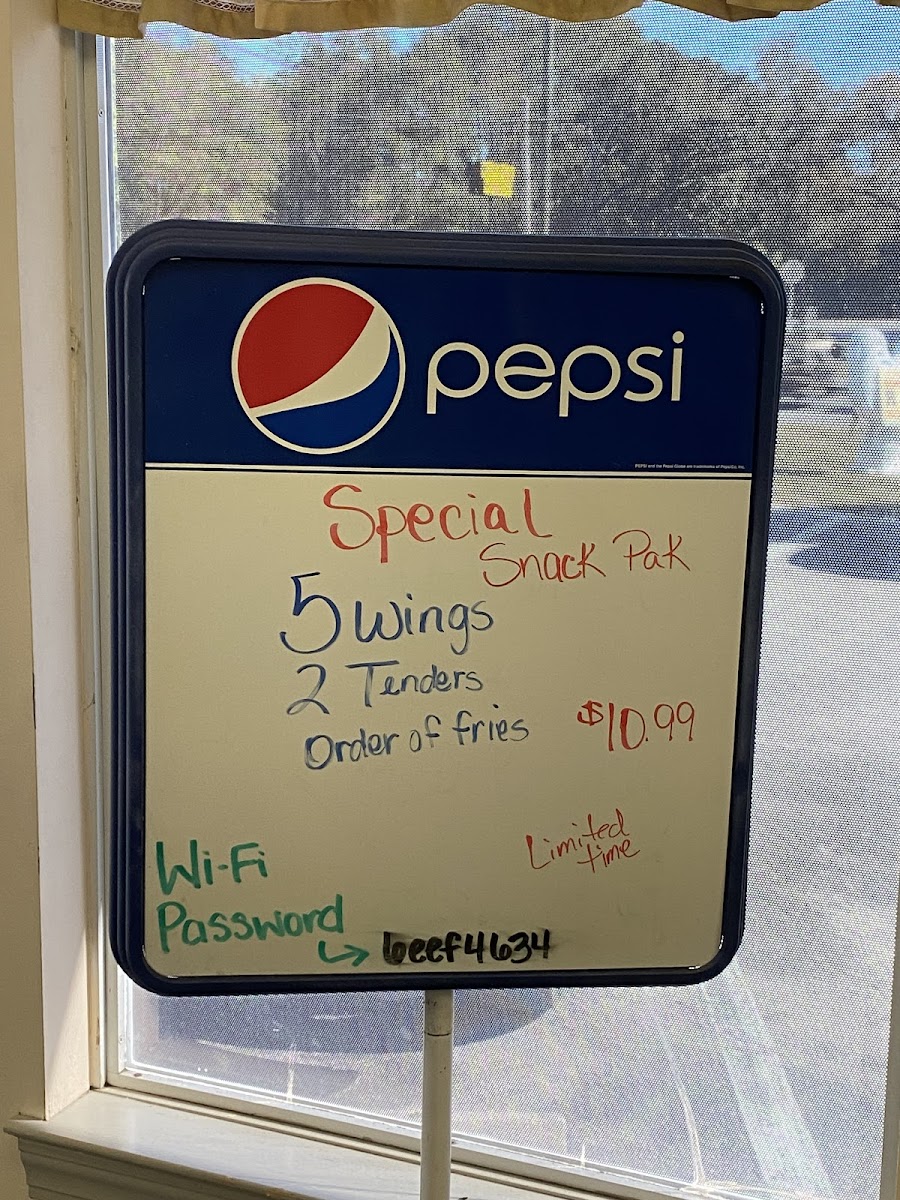 pepsi
PEPSI and the Pepsi Globe are trademarks of PepsiCo, Inc.
Special
Snack Pak
5 Wings
2 Tenders
Order of fries $10.99
Limited
time
Wi-Fi
Password
beef4634